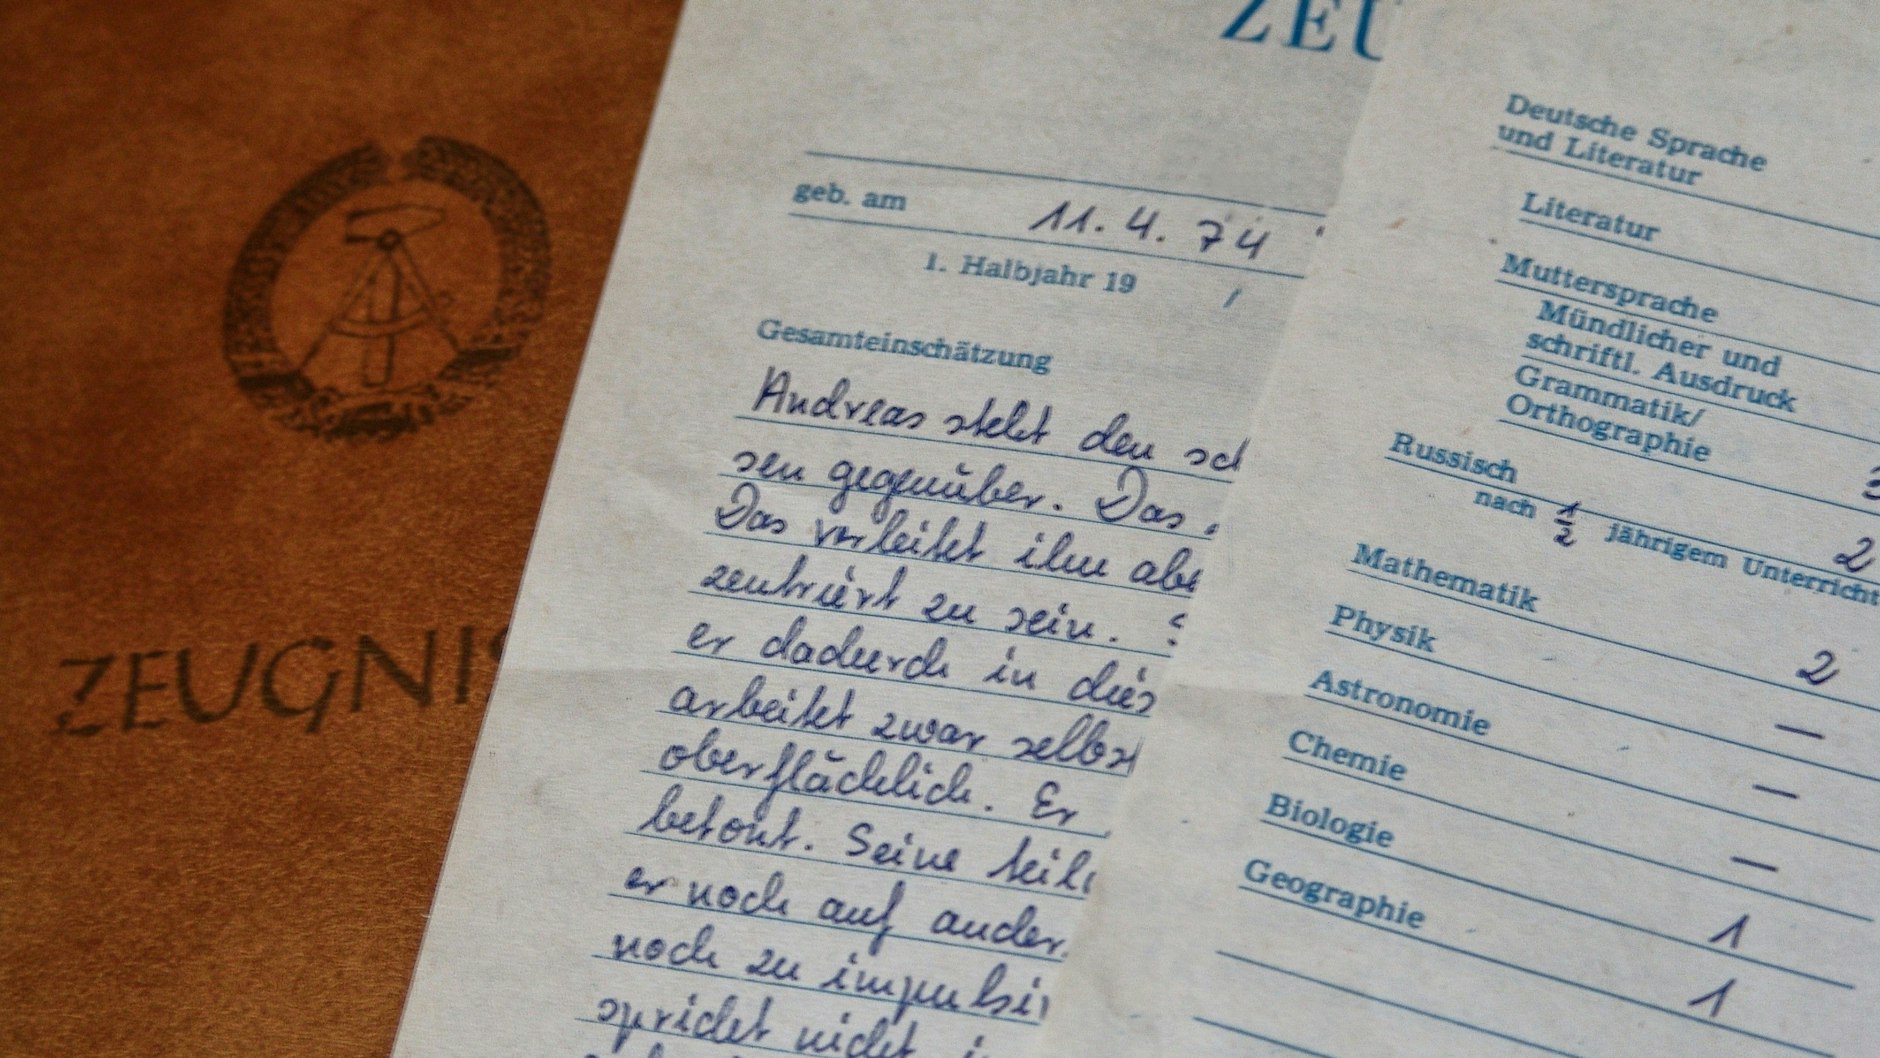 ZEUGNIS
ZEU
geb. am 11. 4. 74
1. Halbjahr 19 /
Gesamteinschätzung
Andreas steht den sch
sen gegenüber. Das
Das verleitet ihn abe
zentriert zu sein.
er dadurch in dies
arbeitet zwar selbst
oberflächlich. Er
betont. Seine teil
er noch auf ander
noch zu impulsiv
spricht nicht i
Deutsche Sprache
und Literatur
Literatur
Muttersprache
Mündlicher und
schriftl. Ausdruck
Grammatik/
Orthographie 3
Russisch
nach 1/2 jährigem Unterricht 2
Mathematik 2
Physik —
Astronomie —
Chemie —
Biologie 1
Geographie 1